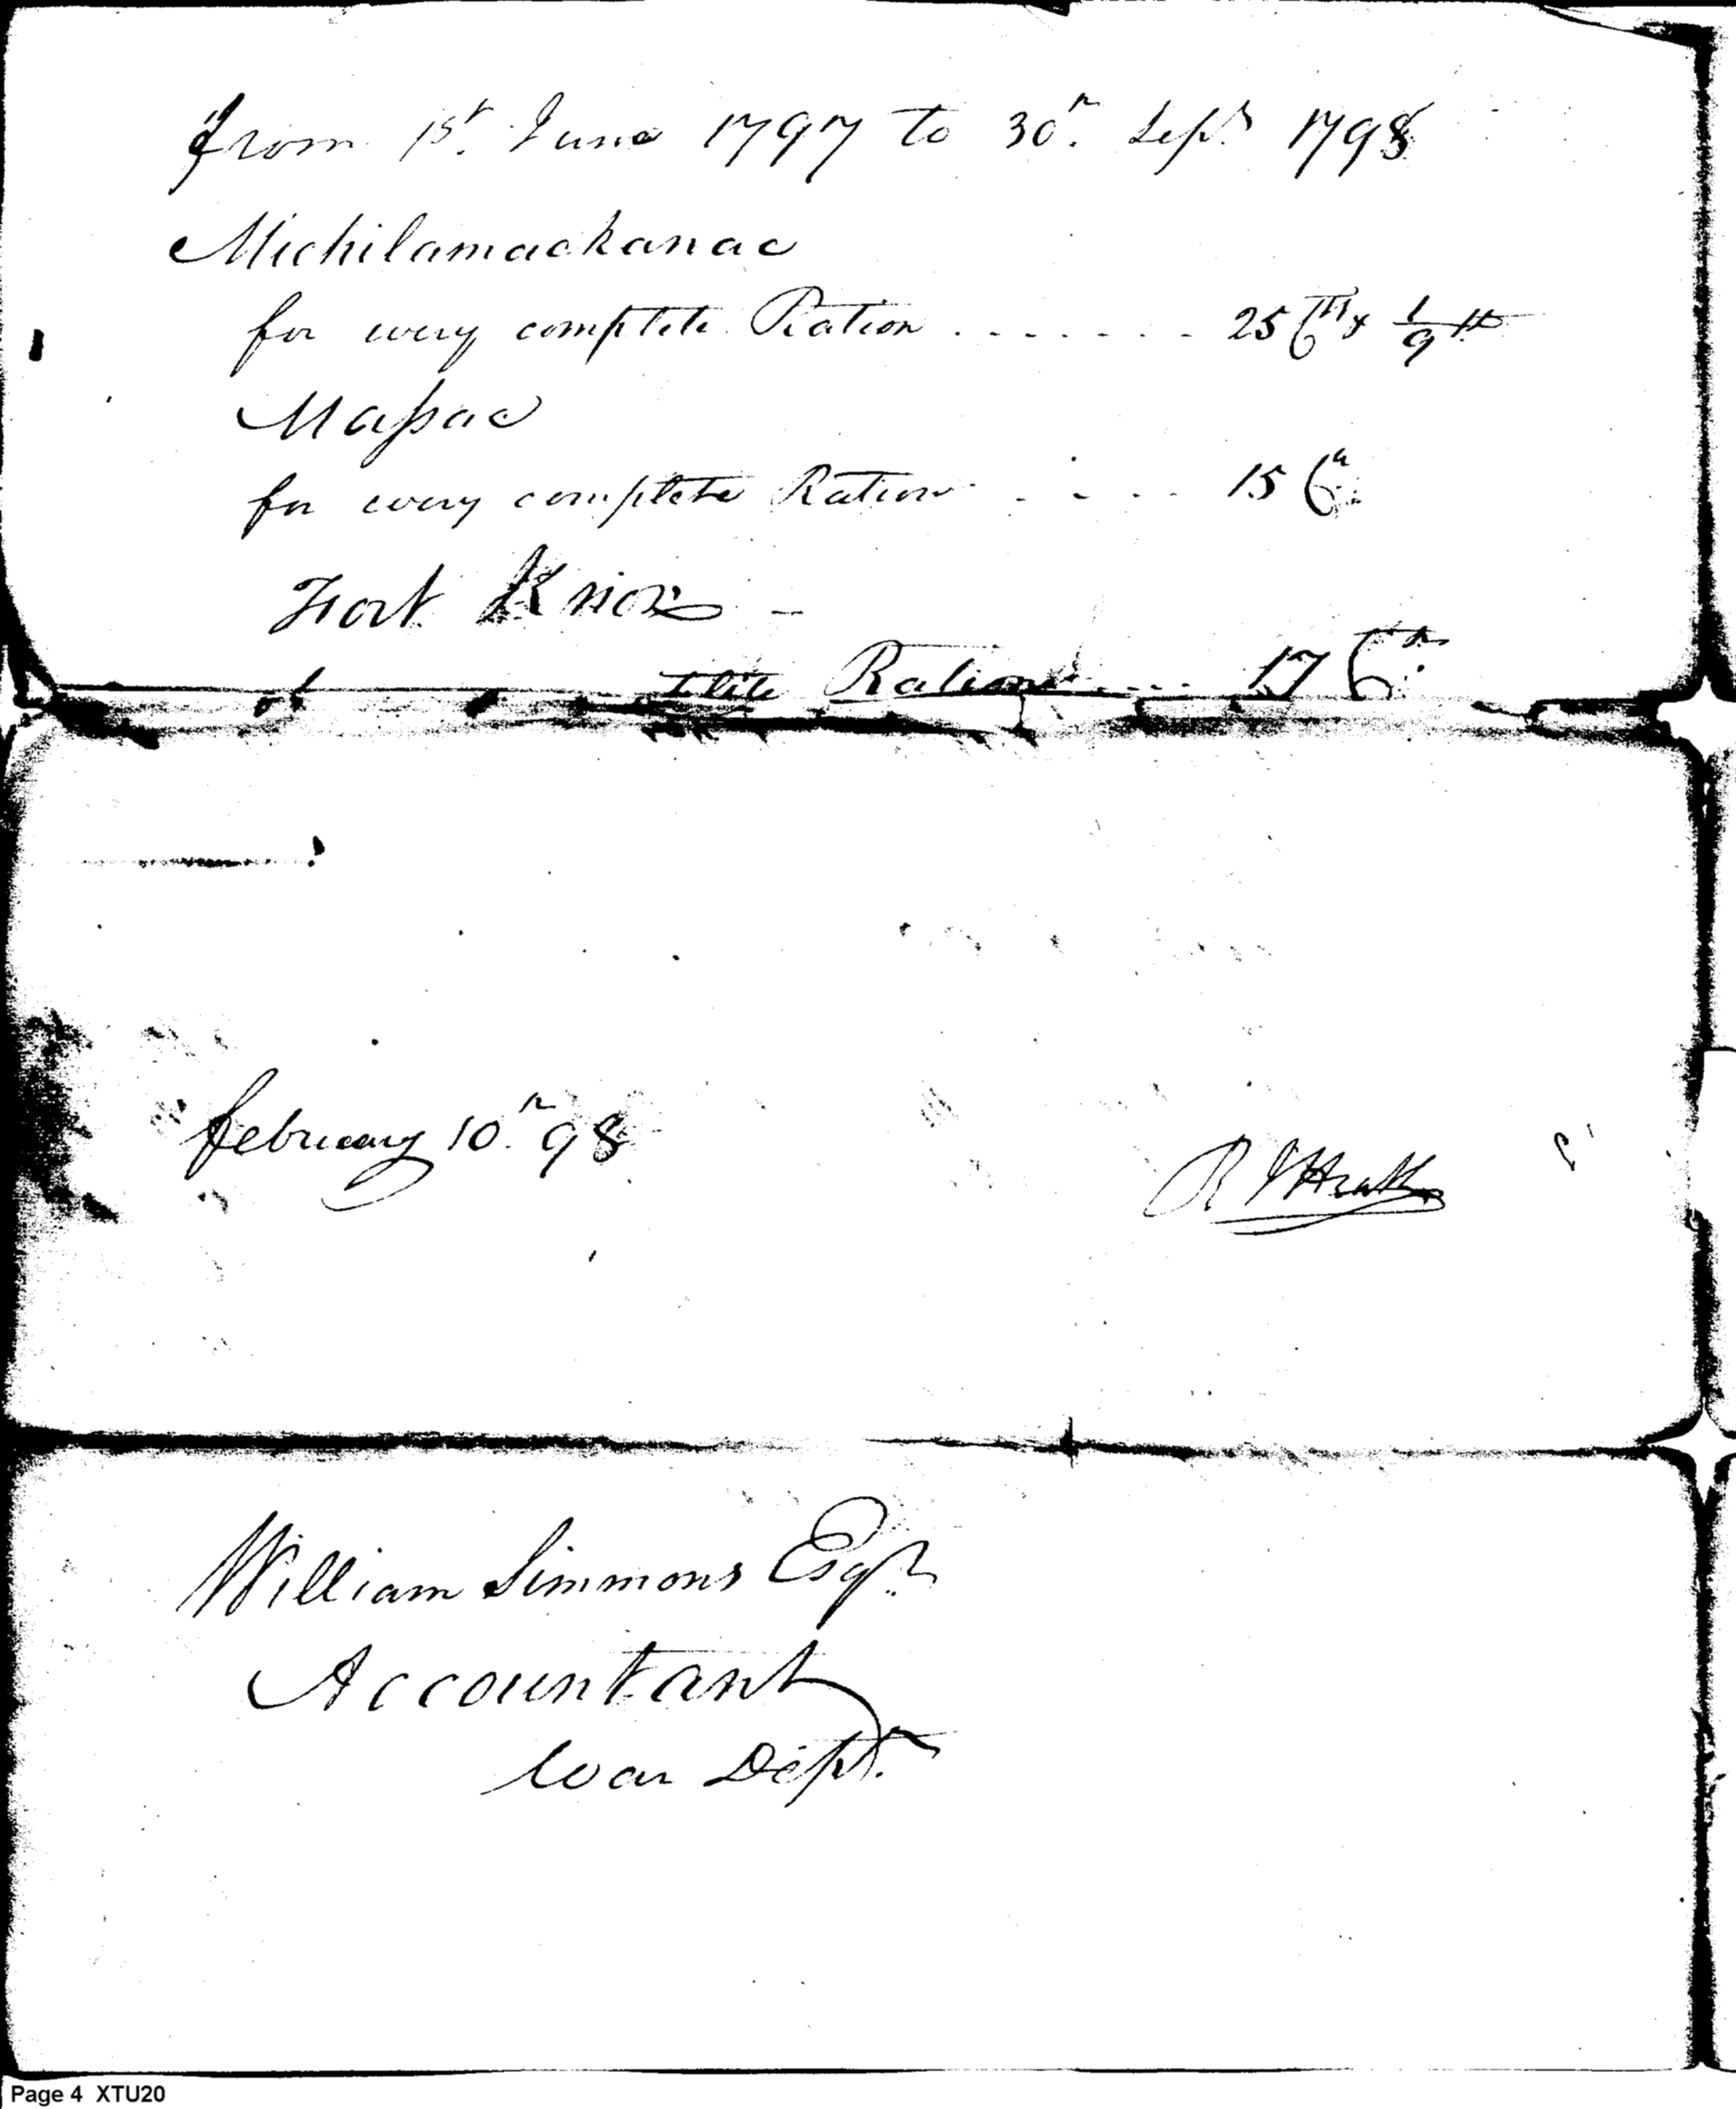 from 1st. June 1797 to 30th. Sept. 1798
Michilamackanac
for every complete Ration ....... 25 Cts & 1/9th
Massac
for every complete Ration .... 15 Cts
Fort Knox -
Ration .... 17 Cts
february 10th. 98
William Simmons Esqr.
Accountant
War Dept.
Page 4 XTU20